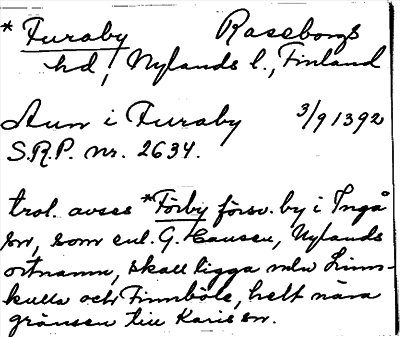 * Furaby Raseborgs
hd, Nylands l., Finland
Aun i Furaby 3/9 1392
S.R.P. nr. 2634.
trol. avses *Förby försv. by i Ingå
sn, som enl. G. Hausen, Nylands
ortnamn, skall ligga mln Linns-
kulla och Finnböle, helt nära
gränsen till Karis sn.